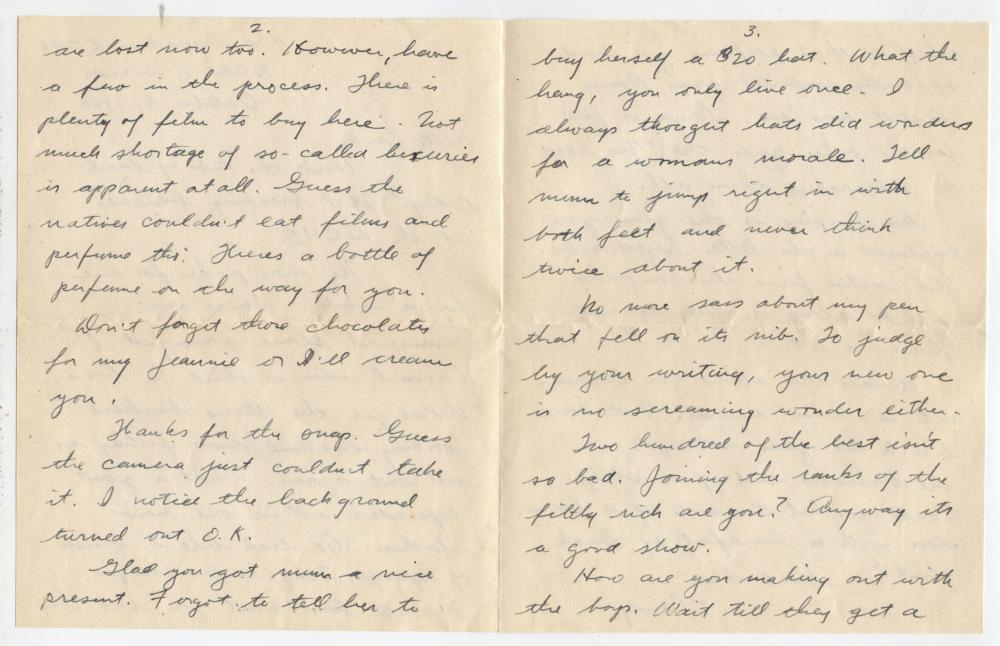 2.
are lost now too. However, have
a few in the process. There is
plenty of film to buy here. Not
much shortage of so-called luxuries
is apparent at all. Guess the
natives couldn't eat films and
perfume thi. Theres a bottle of
perfume on the way for you.
Don't forget those chocolates
for my Jeannie or I'll cream
you.
Thanks for the snap. Guess
the camera just couldn't take
it. I notice the background
turned out O.K.
Glad you got mum a nice
present. Forgot to tell her to
3.
buy herself a $20 hat. What the
hang, you only live once. I
always thought hats did wonders
for a womans morale. Tell
mum to jump right in with
both feet and never think
twice about it.
No more sass about my pen
that fell on its nib. To judge
by your writing, your new one
is no screaming wonder either.
Two hundred of the best isn't
so bad. Joining the ranks of the
filthy rich are you? Anyway its
a good show.
How are you making out with
the boys. Wait till they get a